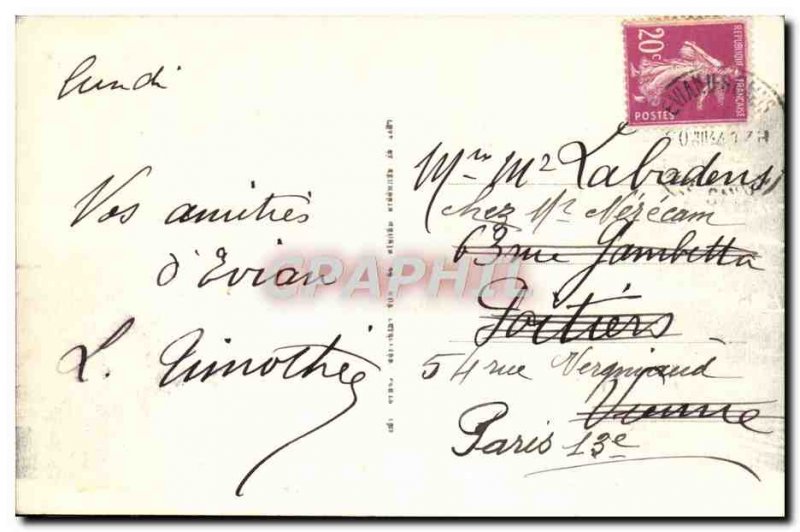 lundi
Vos amitiés
d'Evian
L. Timothée
CPARAPHIL
20c
REPUBLIQUE FRANÇAISE
POSTES
EVIAN
Labadens
chez Mr Nérécam
63 rue Gambetta
Poitiers
54 rue Vergniaud
Vienne
Paris 13e